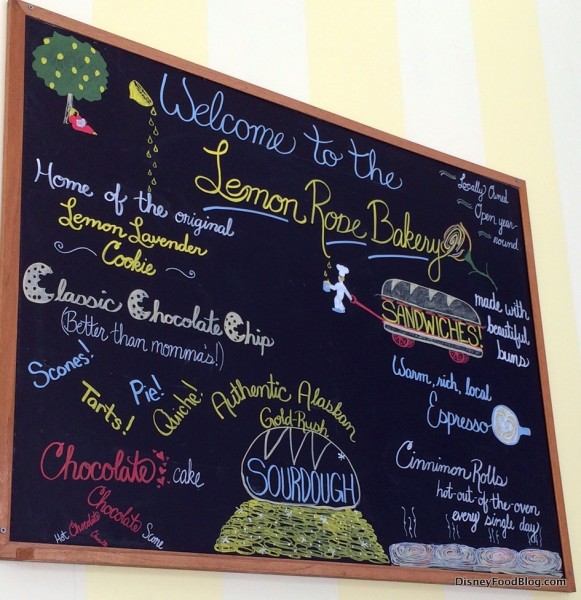 Welcome to the
Lemon Rose Bakery
~ Locally Owned
~ Open year-
~ round
Home of the original
Lemon Lavender
Cookie
Classic Chocolate Chip
(Better than momma's!)
SANDWICHES!
made with
beautiful
buns
Scones!
Tarts!
Pie!
Quiche!
Authentic Alaskan
Gold-Rush
SOURDOUGH
Warm, rich, local
Espresso
Chocolate cake
Chocolate
Hot Chocolate
Scone
Cinnimon Rolls
hot-out-of-the-oven
every single day
DisneyFoodBlog.com